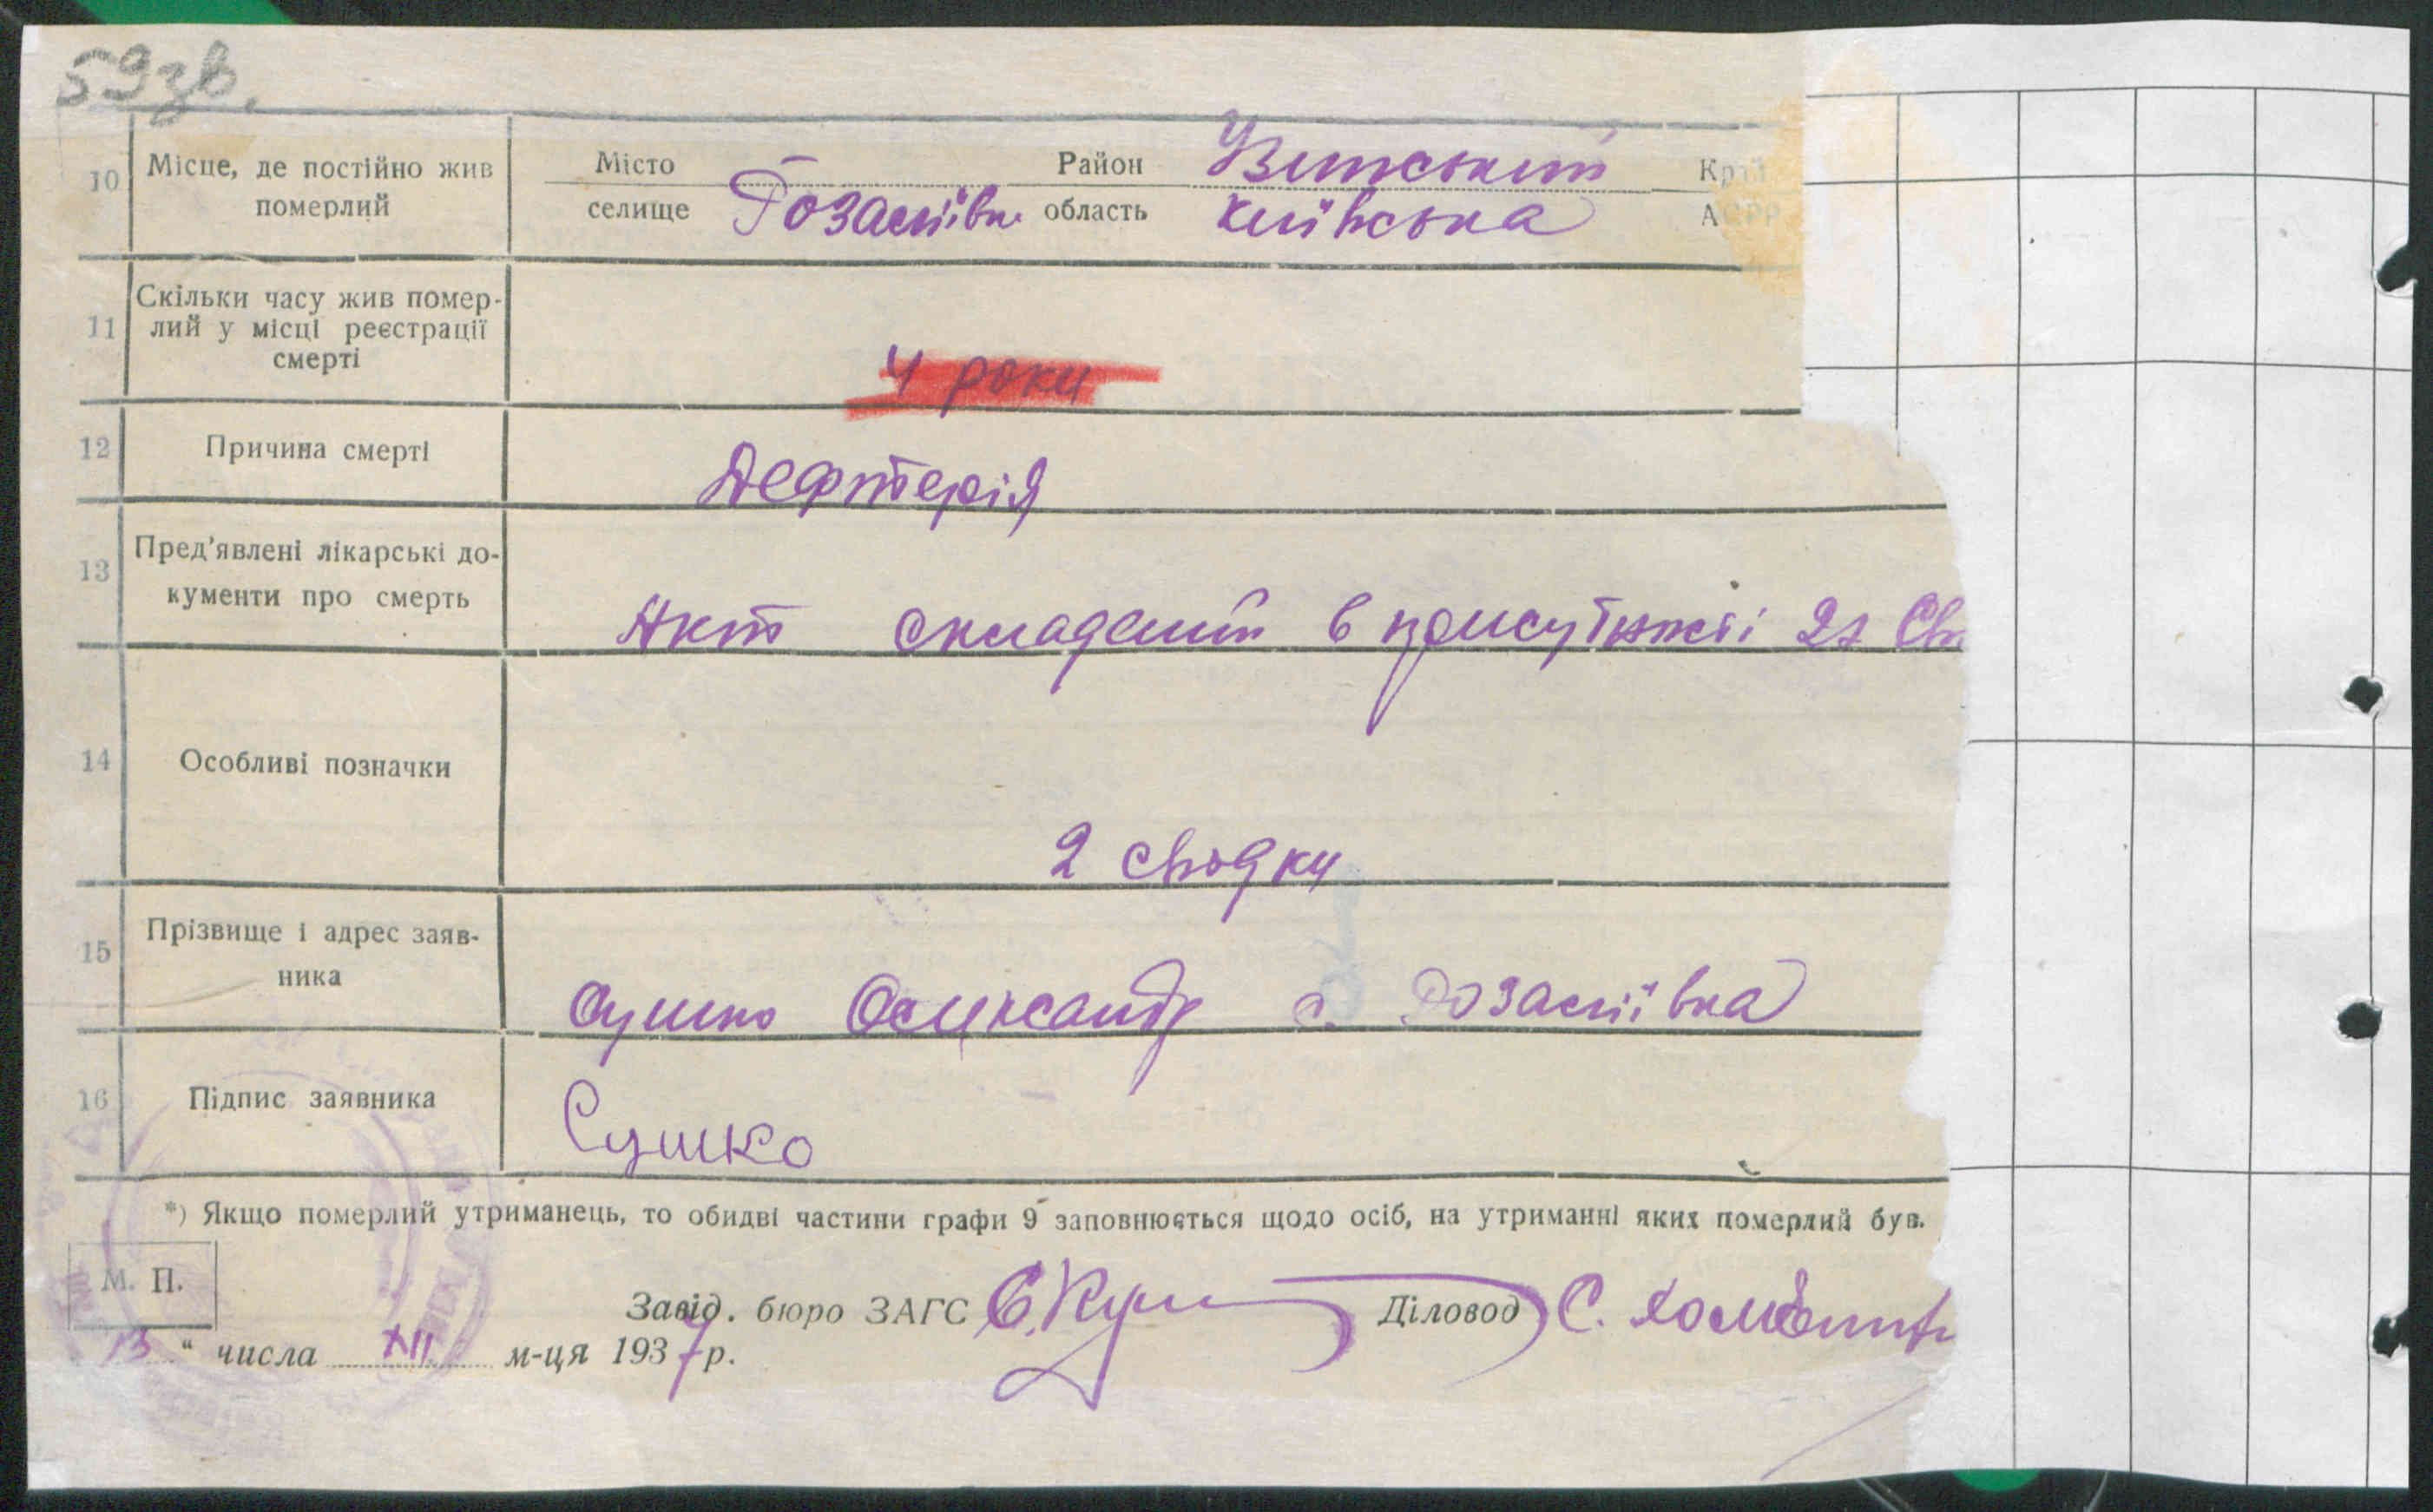 59зв.
10 Місце, де постійно жив померлий
Місто
селище Розаліївк
Район Узинський
область Київська
Край
АСРР
11 Скільки часу жив помер-
лий у місці реєстрації
смерті
4 роки
12 Причина смерті
Дефтерія
13 Пред'явлені лікарські до-
кументи про смерть
Акт складений в присутності 2х Св
14 Особливі позначки
2 сводки
15 Прізвище і адрес заяв-
ника
Сушко Олександр с. Розаліївка
16 Підпис заявника
Сушко
*) Якщо померлий утриманець, то обидві частини графи 9 заповнюється щодо осіб, на утриманні яких померлий був.
М. П.
Завід. бюро ЗАГС
Діловод С.
13 " числа XII м-ця 1937 р.